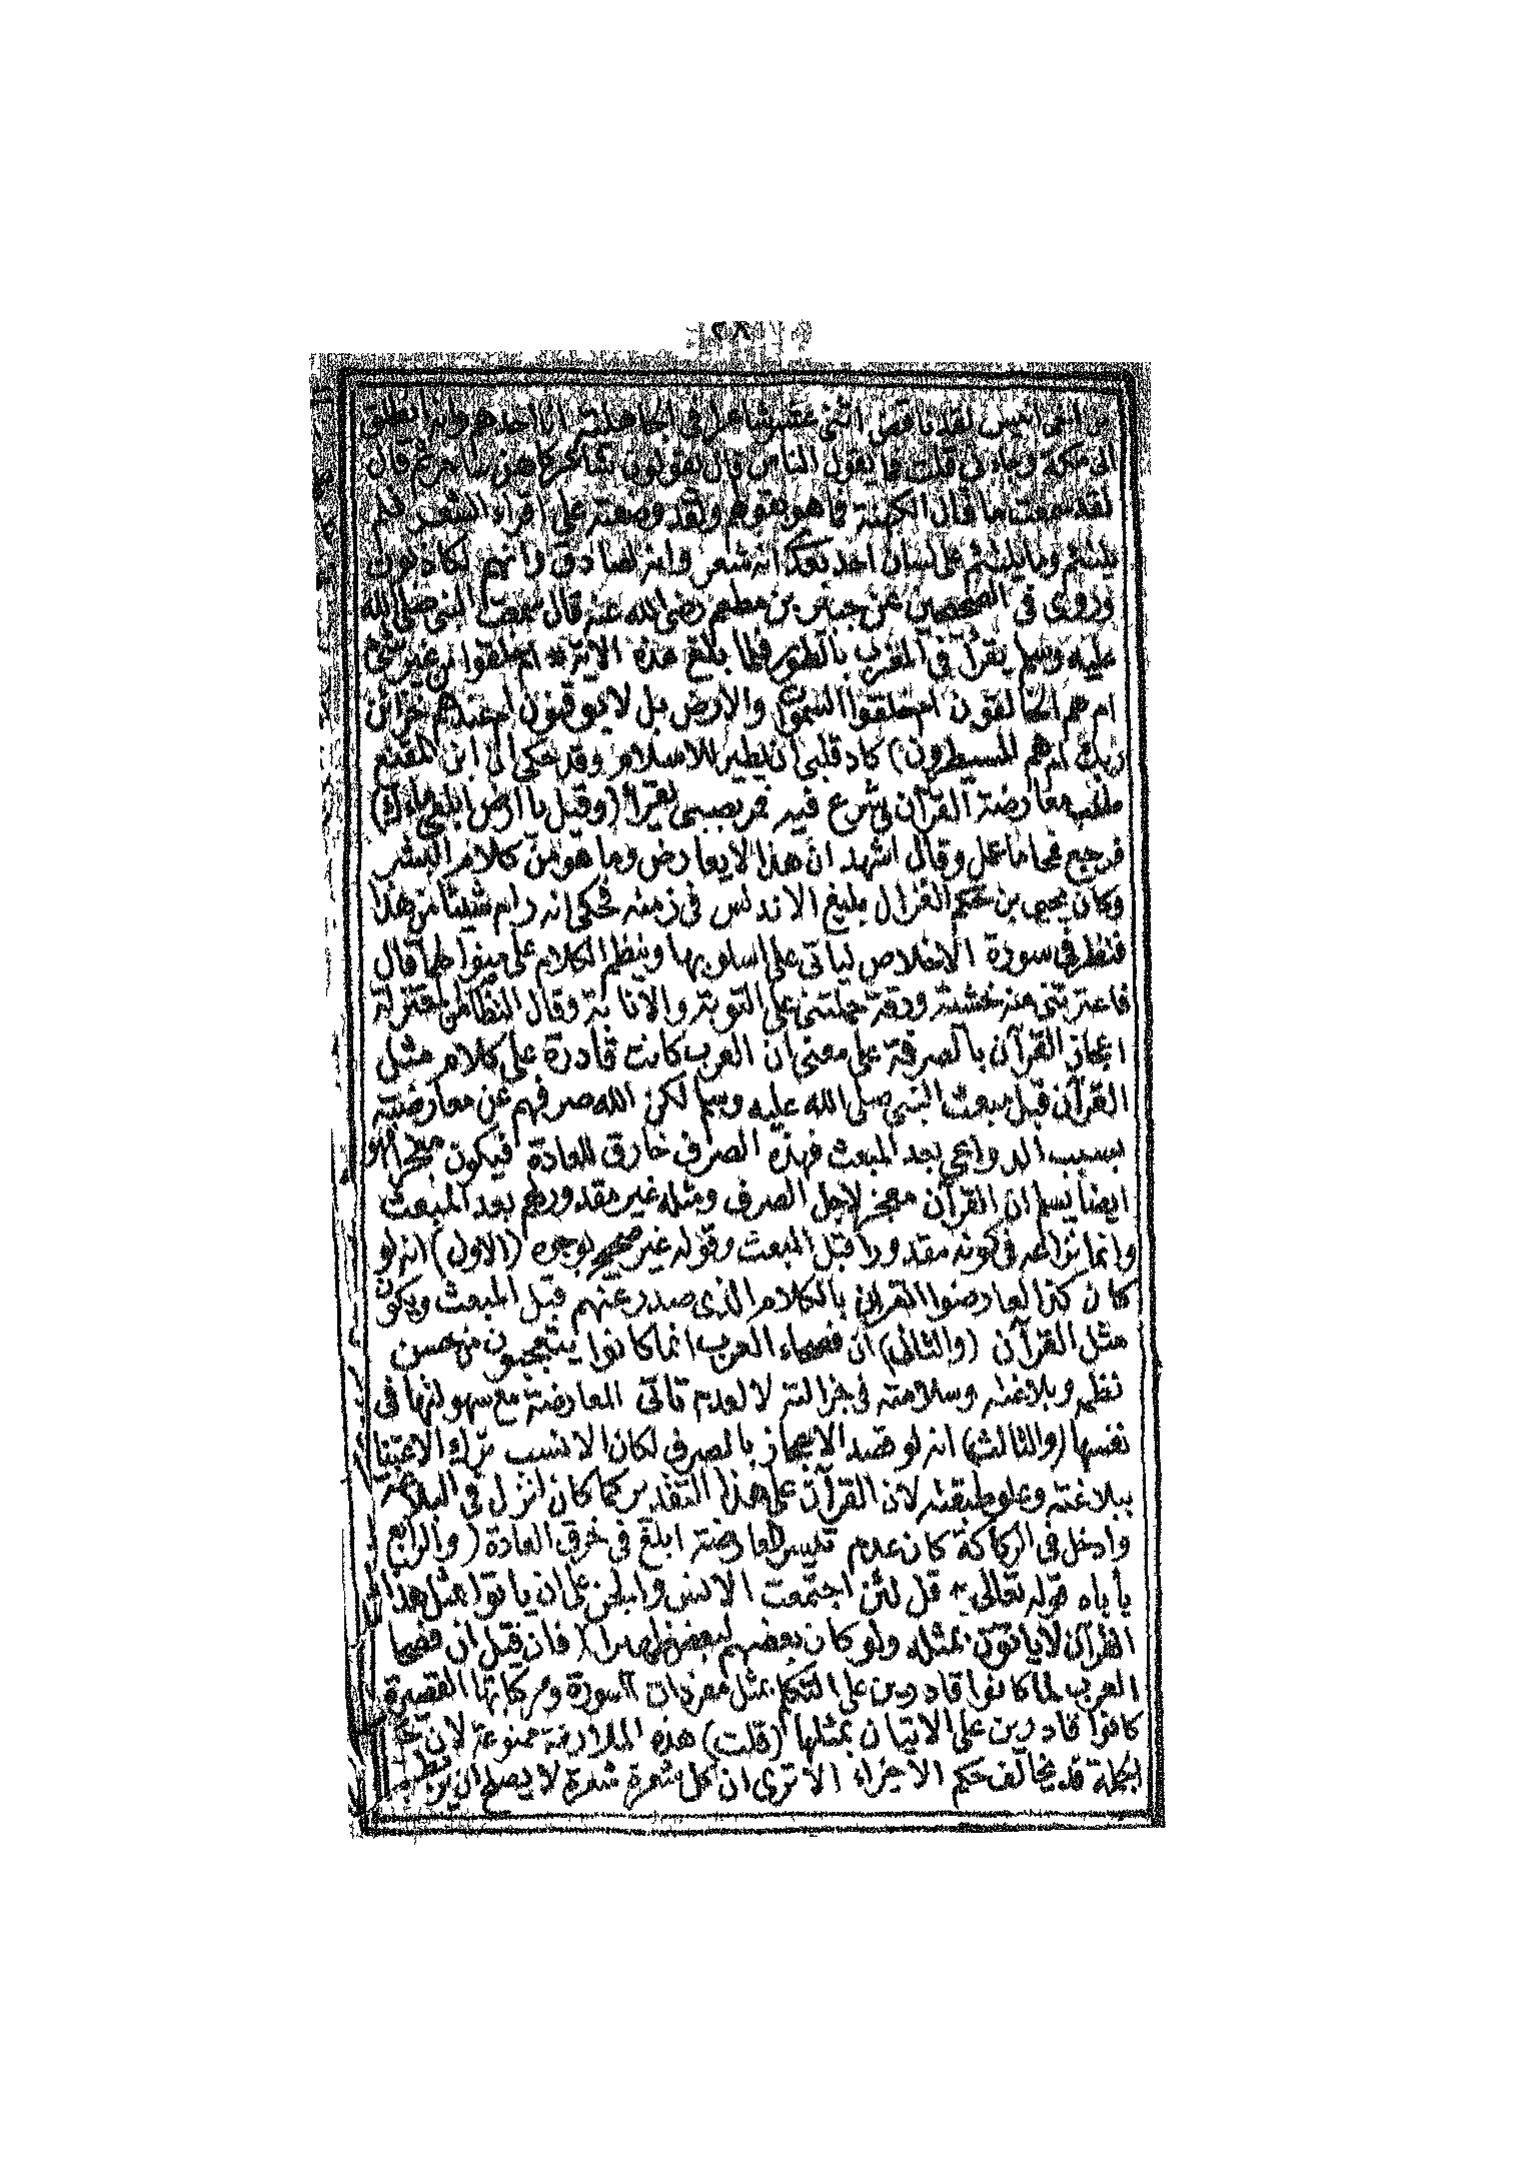 من اخى انيس لقد ناقض اثنى عشر شاعرا فى الجاهلية انا احدهم وانه انطلق
الى مكة وجاءنى قلت فما يقول الناس قال يقولون شاعر كاهن ساحر ثم قال
لقد سمعت ما قال الكهنة فما هو بقولهم ولقد وضعته على اقراء الشعر فلم
يلتئم وما يلتئم على لسان احد بعدى انه شعر وانه لصادق وانهم لكاذبون
وروى فى الصحيحين عن جبير بن مطعم رضى الله عنه قال سمعت النبى صلى الله
عليه وسلم يقرأ فى المغرب بالطور فلما بلغ هذه الاية * ام خلقوا من غير شئ
ام هم الخالقون ام خلقوا السموات والارض بل لا يوقنون ام عندهم خزائن
ربك ام هم المسيطرون) كاد قلبى ان يطير للاسلام وقد حكى ان ابن المقفع
طلب معارضة القرآن فشرع فيه فمر بصبى يقرأ (وقيل يا ارض ابلعى ماءك)
فرجع فمحا ما عمل وقال اشهد ان هذا لا يعارض وما هو من كلام البشر
وكان يحيى بن حكم الغزال بليغ الاندلس فى زمنه فحكى انه رام شيئا من هذا
فنظر فى سورة الاخلاص ليأتى على اسلوبها وينظم الكلام على منوالها قال
فاعترتنى منه خشية ورقة حملتنى على التوبة والانابة وقال النظام من المعتزلة
اعجاز القرآن بالصرفة على معنى ان العرب كانت قادرة على كلام مثل
القرآن قبل مبعث النبى صلى الله عليه وسلم لكن الله صرفهم عن معارضته
بسبب الدواعى بعد المبعث فهذه الصرف خارق للعادة فيكون معجزا فهو
ايضا يسلم ان القرآن معجز لاجل الصرف ومثله غير مقدور لهم بعد المبعث
وانما نزاعه فى كونه مقدورا قبل المبعث وقوله غير صحيح لوجوه (الاول) انه لو
كان كذا لعارضوا القرآن بالكلام الذى صدر عنهم قبل المبعث ويكون
مثل القرآن (والثانى) ان فصحاء العرب انما كانوا يتعجبون من حسن
نظمه وبلاغته وسلاسته فى جزالته لا لعدم تأتى المعارضة مع سهولتها فى
نفسها (والثالث) انه لو قصد الاعجاز بالصرف لكان الانسب ترك الاعتناء
ببلاغته وعلو طبقته لان القرآن على هذا التقدير كلما كان انزل فى البلاغة
وادخل فى الركاكة كان عدم تيسر المعارضة ابلغ فى خرق العادة (والرابع
يأباه قوله تعالى * قل لئن اجتمعت الانس والجن على ان يأتوا بمثل هذا
القرآن لا يأتون بمثله ولو كان بعضهم لبعض ظهيرا) فان قيل ان فصحا
العرب لما كانوا قادرين على التكلم بمثل مفردات السورة ومركباتها القصيرة
كانوا قادرين على الاتيان بمثلها (قلت) هذه الملازمة ممنوعة لان حكم
الجملة قد يخالف حكم الاجزاء الا ترى ان كل شعرة شعرة لا يصلح ان يربط